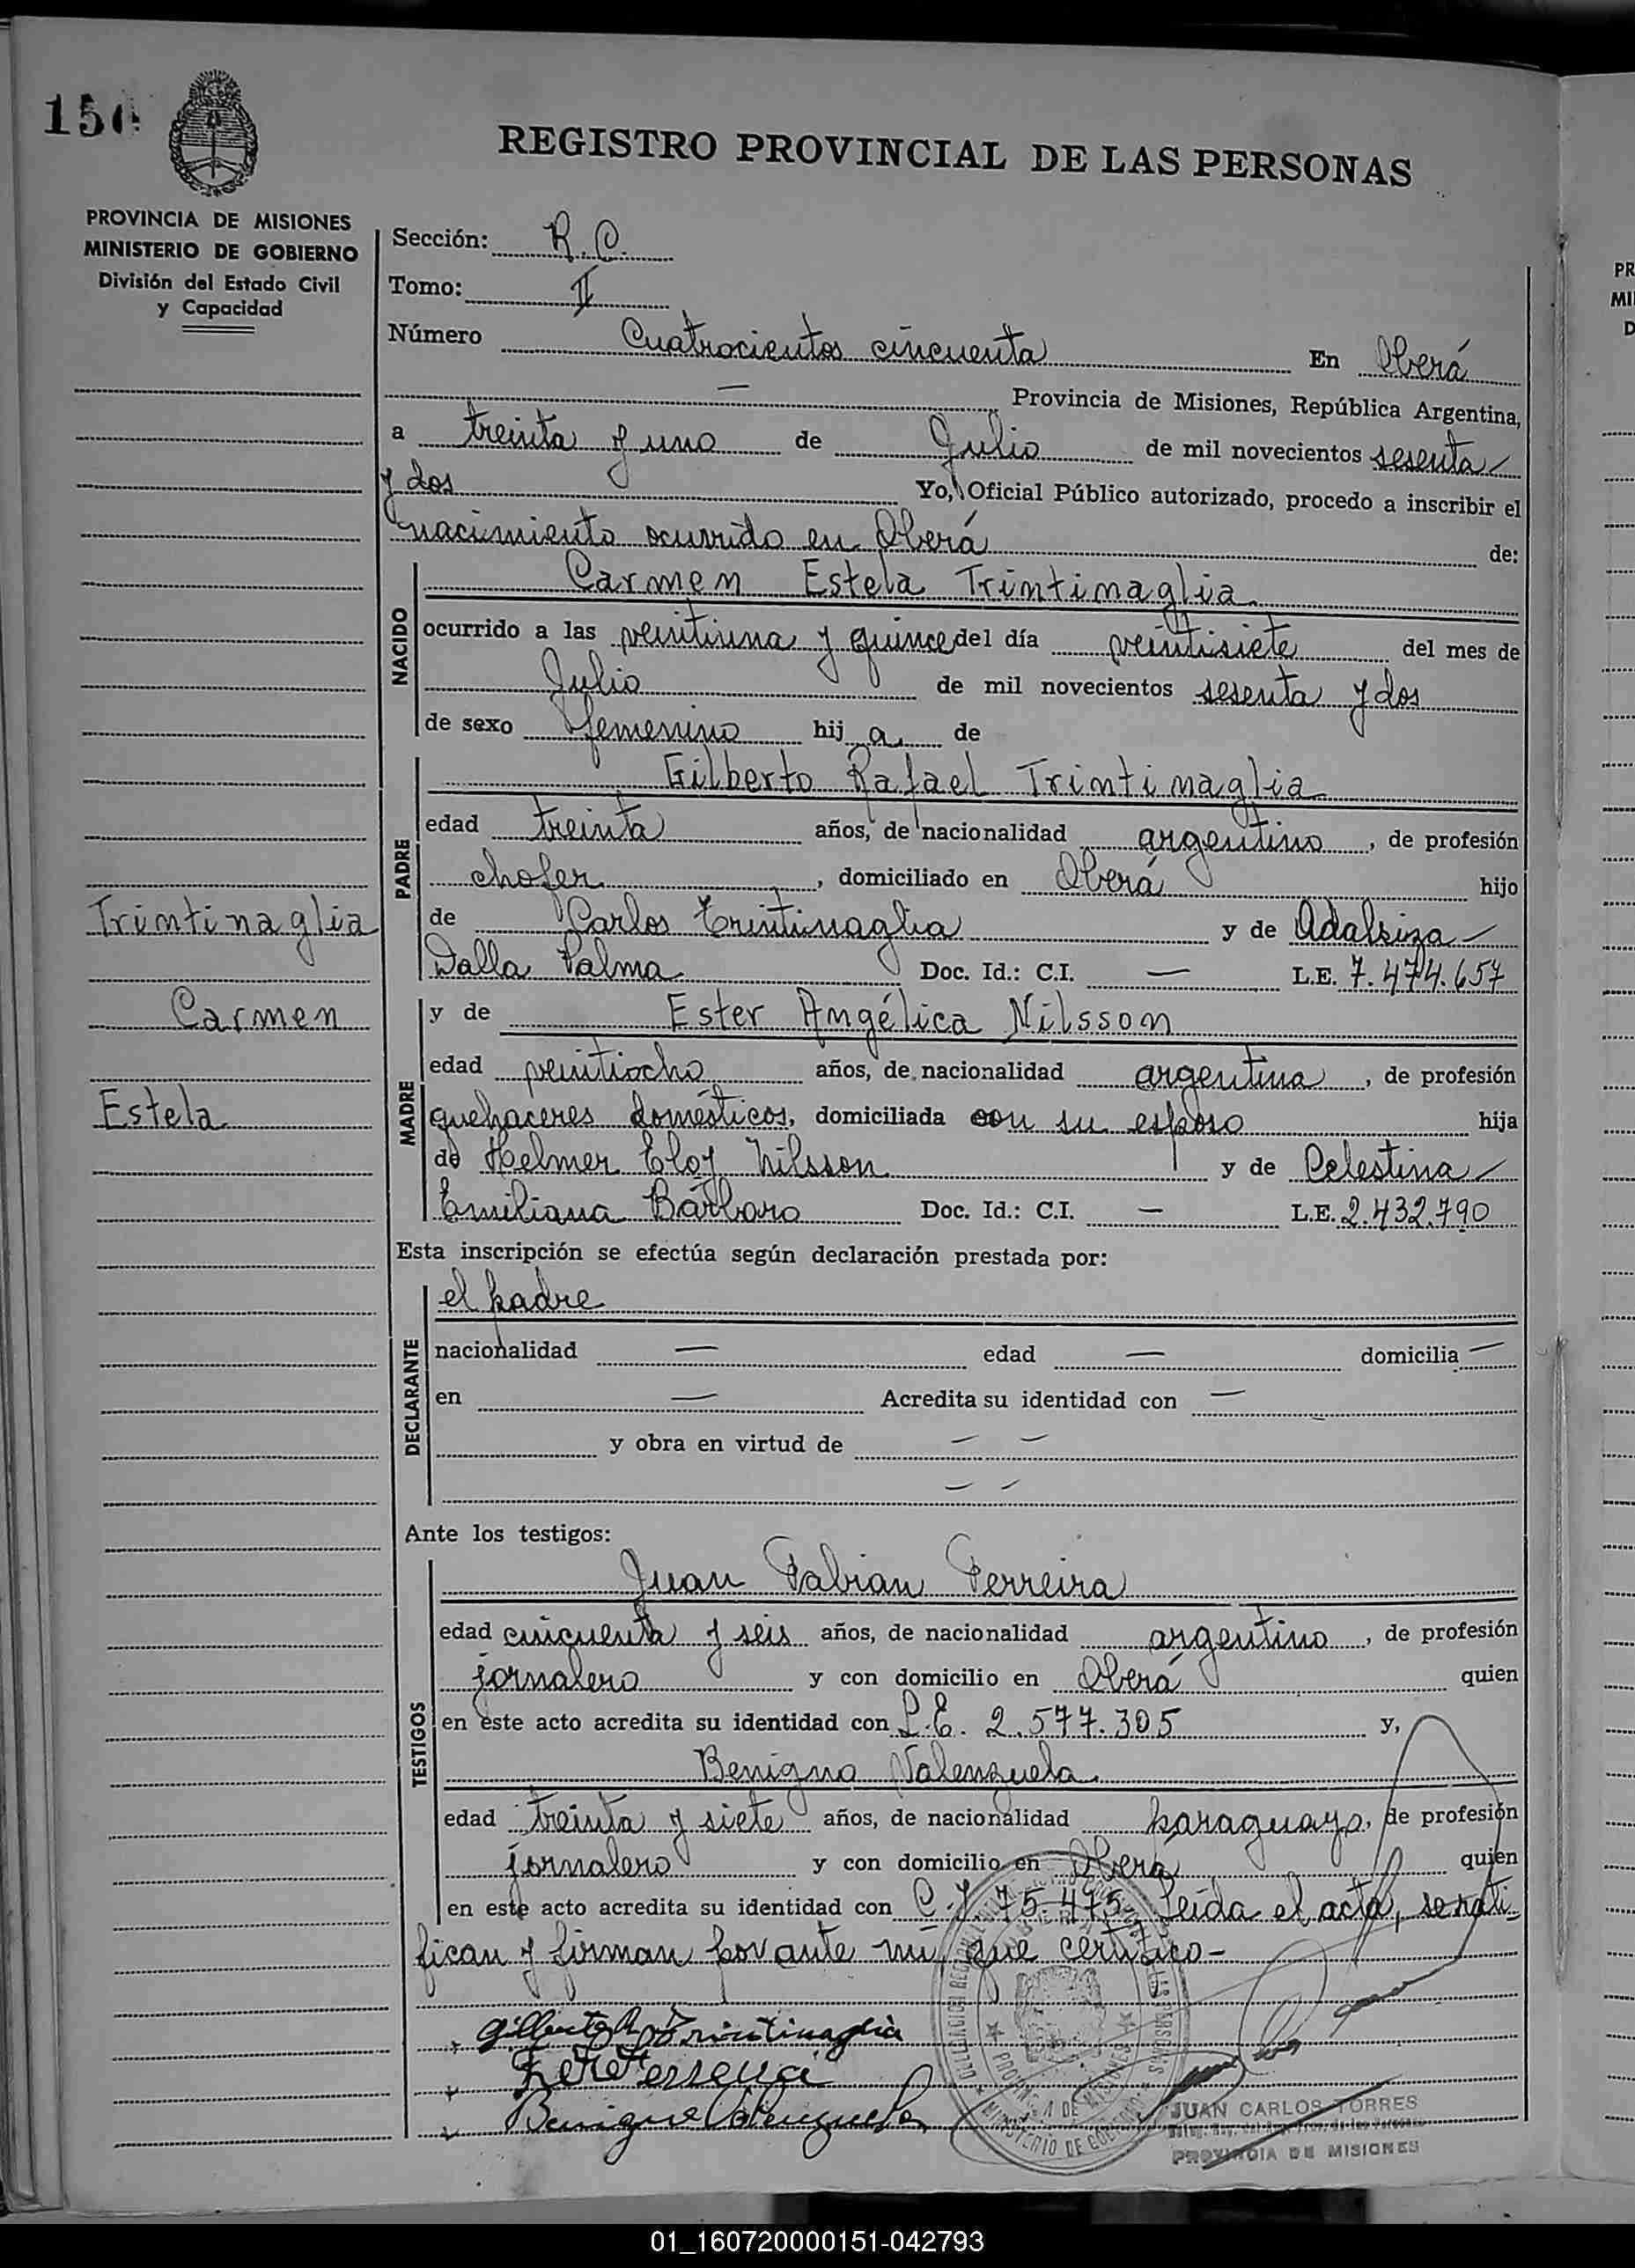 150
REGISTRO PROVINCIAL DE LAS PERSONAS
PROVINCIA DE MISIONES
MINISTERIO DE GOBIERNO
División del Estado Civil
y Capacidad
Sección: R. C.
Tomo: II
Número Cuatrocientos cincuenta En Oberá
— Provincia de Misiones, República Argentina,
a treinta y uno de Julio de mil novecientos sesenta
y dos Yo, Oficial Público autorizado, procedo a inscribir el
nacimiento ocurrido en Oberá de:
NACIDO
Carmen Estela Trintinaglia
ocurrido a las veintiuna y quince del día veintisiete del mes de
Julio de mil novecientos sesenta y dos
de sexo femenino hij a de
PADRE
Gilberto Rafael Trintinaglia
edad treinta años, de nacionalidad argentino, de profesión
chofer, domiciliado en Oberá hijo
de Carlos Trintinaglia y de Adalsiza
Dalla Palma Doc. Id.: C.I. — L.E. 7.474.657
Trintinaglia
Carmen
Estela
MADRE
y de Ester Angélica Nilsson
edad veintiocho años, de nacionalidad argentina, de profesión
quehaceres domésticos, domiciliada con su esposo hija
de Helmer Eloy Nilsson y de Celestina
Emiliana Bárbaro Doc. Id.: C.I. — L.E. 2.432.790
Esta inscripción se efectúa según declaración prestada por:
DECLARANTE
el padre
nacionalidad — edad — domicilia —
en — Acredita su identidad con —
y obra en virtud de — —
— —
Ante los testigos:
TESTIGOS
Juan Fabian Ferreira
edad cincuenta y seis años, de nacionalidad argentino, de profesión
jornalero y con domicilio en Oberá quien
en este acto acredita su identidad con L.E. 2.577.305 y,
Benigno Valenzuela
edad treinta y siete años, de nacionalidad paraguayo, de profesión
jornalero y con domicilio en Oberá quien
en este acto acredita su identidad con C.I. 75.475 Leída el acta, se rati-
fican y firman por ante mí que certifico-
Gilberto R Trintinaglia
Benigno Valenzuela
PROVINCIA DE MISIONES
MINISTERIO DE GOBIERNO
JUAN CARLOS TORRES
PROVINCIA DE MISIONES
PR
MI
D
01_160720000151-042793